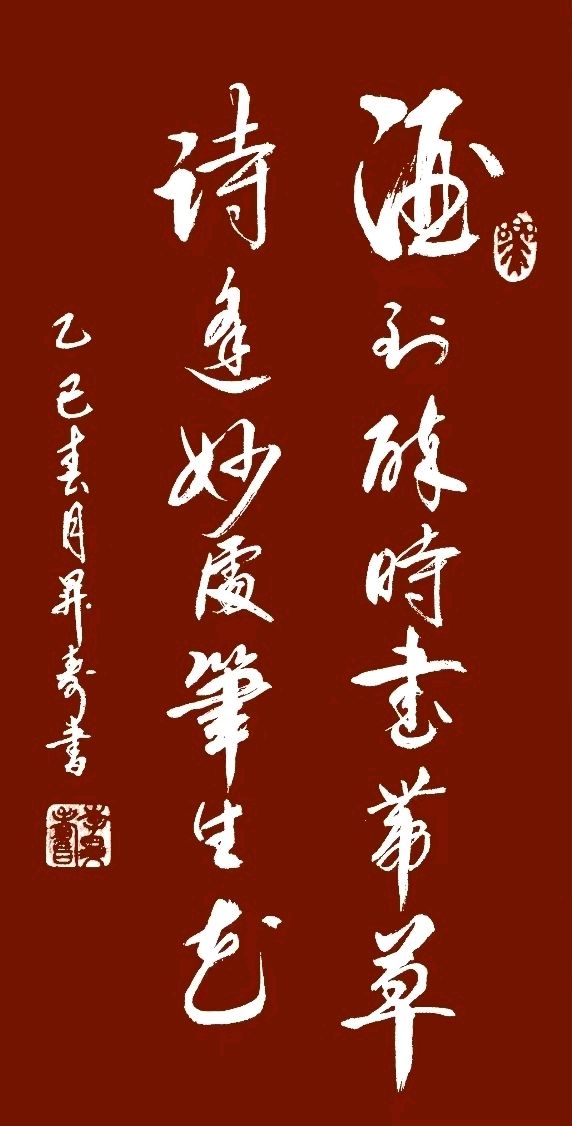 酒到醉時書帶草
詩逢妙處筆生花
乙巳春月昇壽書